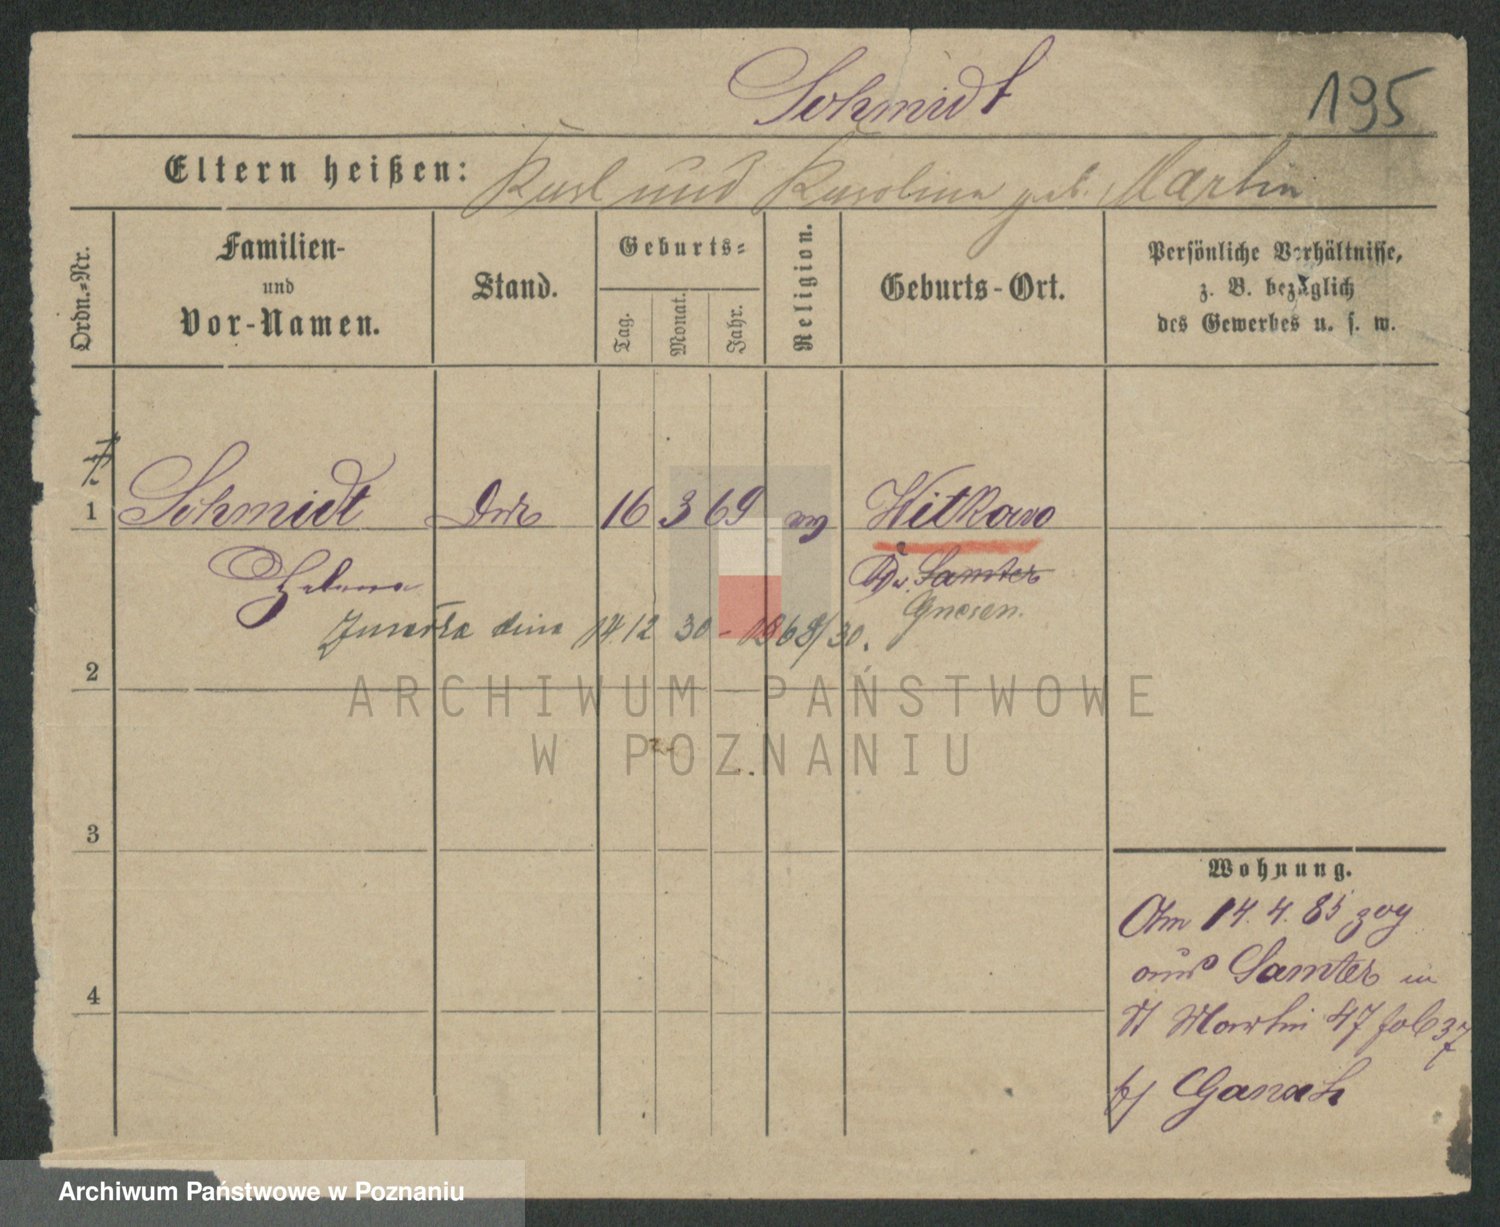 Schmidt 195
Eltern heißen: Karl und Karolina geb. Martin
Ordn.-Nr.
Familien-
und
Vor-Namen.
Stand.
Geburts-
Tag.
Monat.
Jahr.
Religion.
Geburts-Ort.
Persönliche Verhältnisse,
z. B. bezüglich
des Gewerbes u. s. w.
1 Schmidt 16 3 69 Witkowo
Samter
Gnesen.
Zmarła dnia 14 12 30 - 1968/30.
2
3
4
Wohnung.
Am 14. 4. 85 zog
aus Samter in
St Martin 47 fol 37
ARCHIWUM PAŃSTWOWE
W POZNANIU
Archiwum Państwowe w Poznaniu